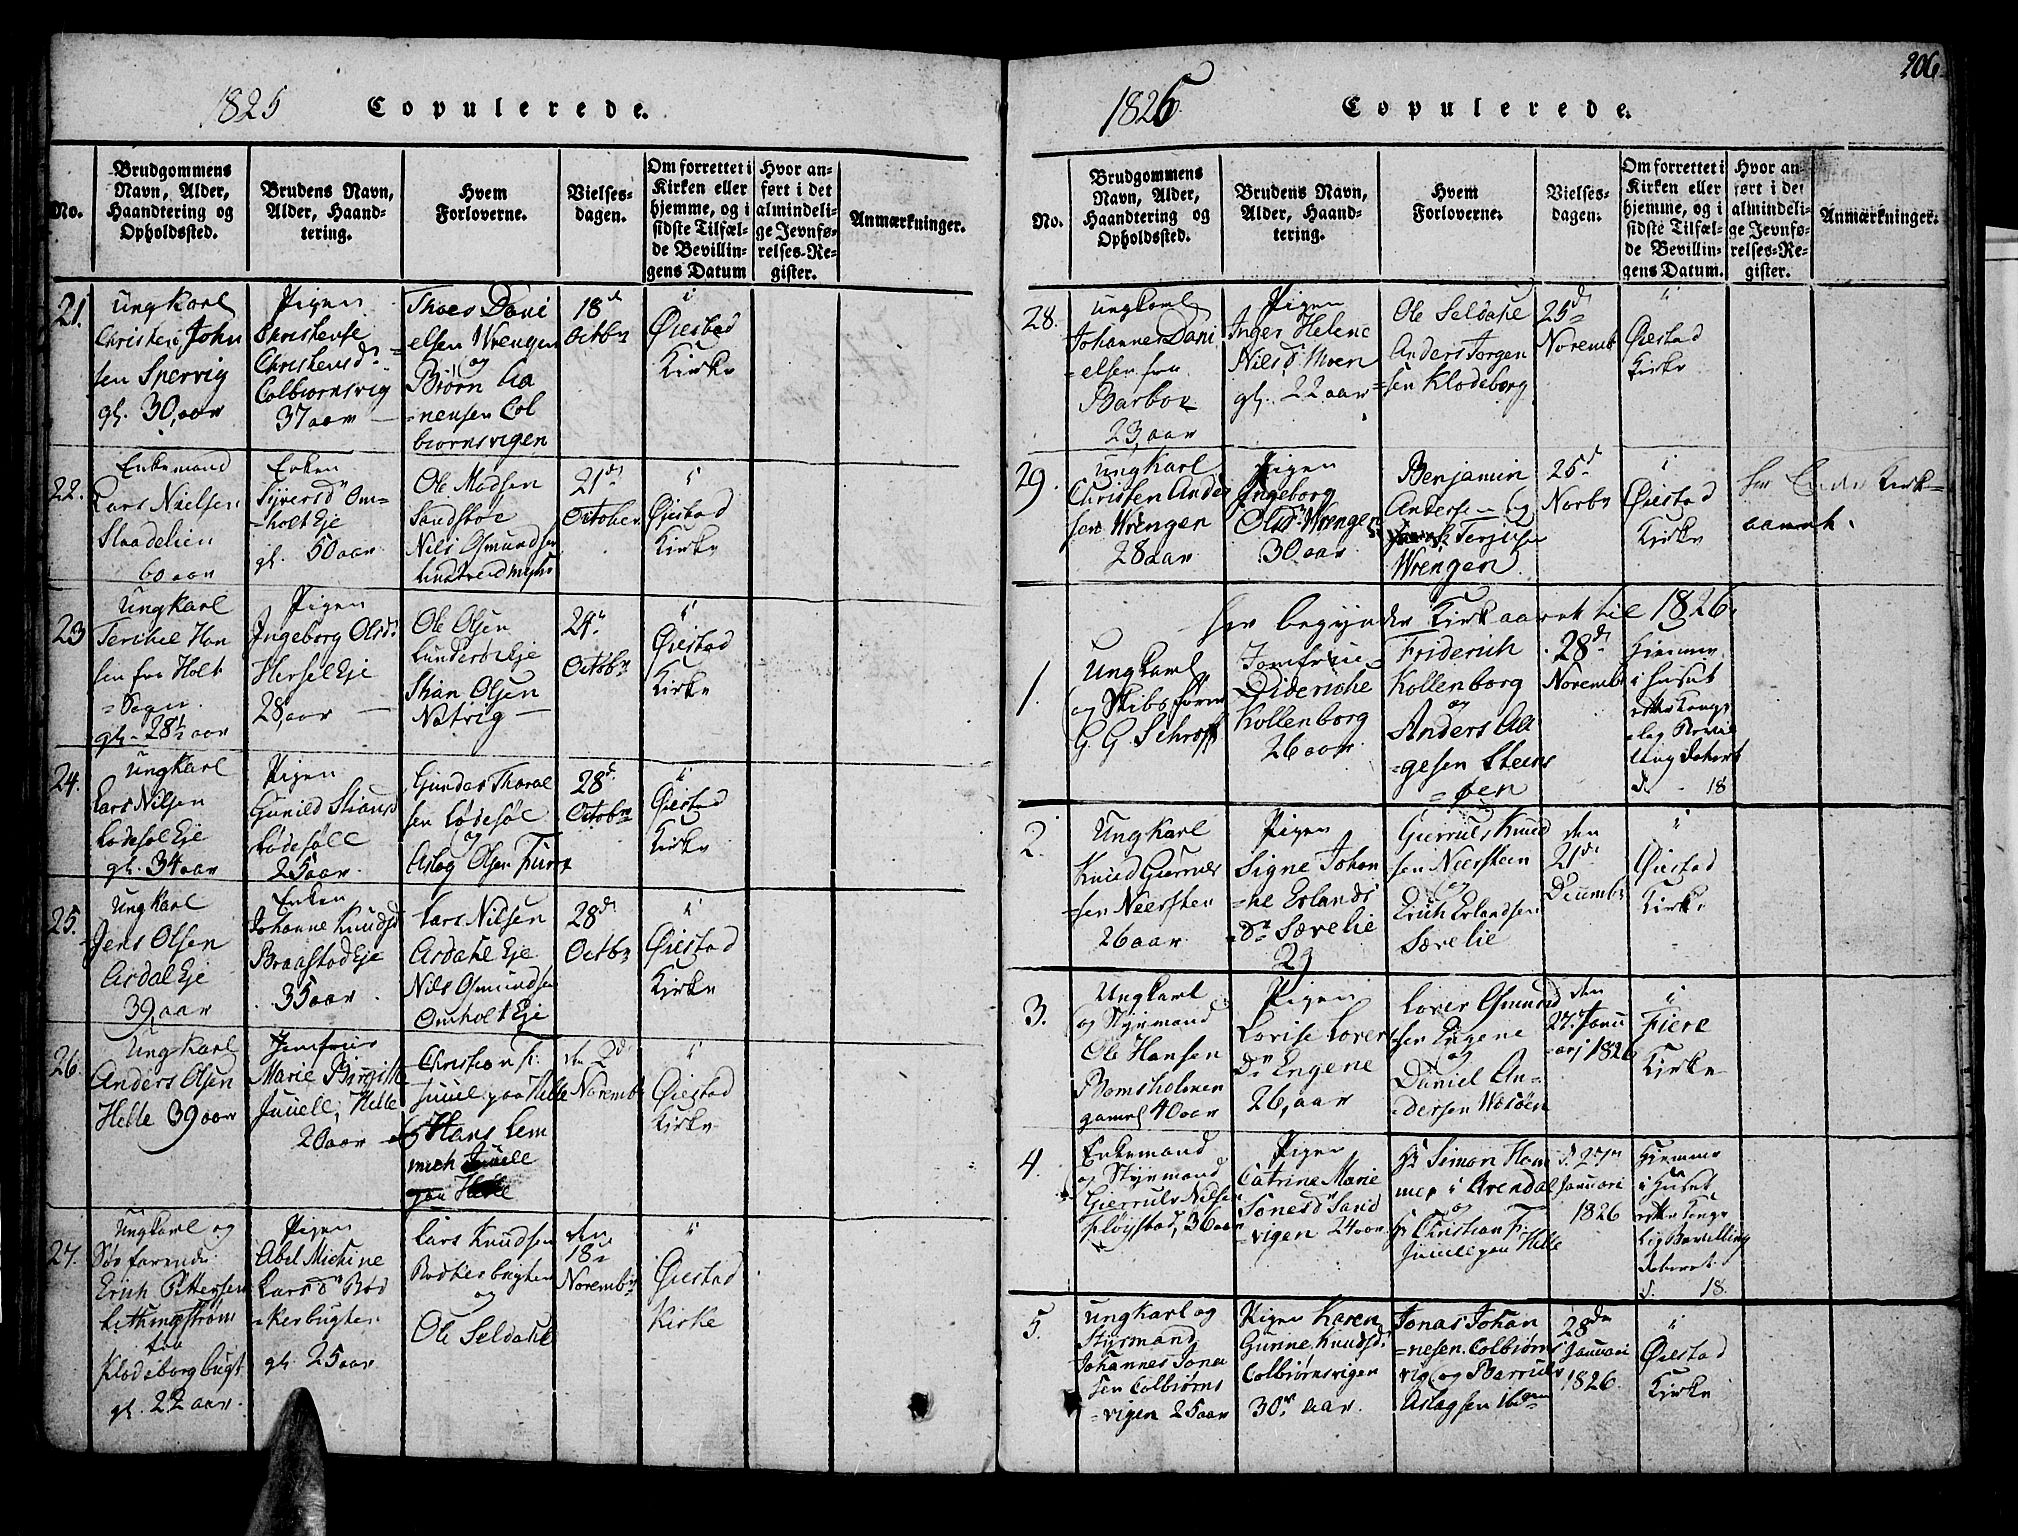 1825 Copulerede.
No.
Brudgommens
Navn, Alder,
Haandtering og
Opholdssted.
Brudens Navn,
Alder, Haand-
tering.
Hvem
Forloverne.
Vielses-
dagen.
Om forrettet i
Kirken eller
hjemme, og i
sidste Tilfæl-
de Bevillin-
gens Datum
Hvor an-
ført i det
almindeli-
ge Jevnfø-
relses-Re-
gister.
Anmærkninger.
21.
Ungkarl
Christen John
sen Spervig
gl. 30, aar
Pigen
Christense
Christensd
Colbiørnsvig
37 aar
Thoes Dani
elsen Wrengen
og
Biørn
nensen Col
biørnsvigen
18
Octbr
Øiestad
Kirke
22.
Enkemand
Lars Nielsen
60 aar
Enken
Siversd Om-
holt Eje
gl. 50 aar
Ole Madsen
Nils Osmundsen
21
October
Øiestad
Kirke
23
Ungkarl
Terchel Han
sen fra Holt
Sogn.
gl. 28½ aar
Pigen
Ingeborg Olsd
Hersel Eje
28, aar
Ole Olsen
Lunderøe Eje
Stian Olsen
Natvig
29
Octobr
Øiestad
Kirke
24.
Ungkarl
Lars Nilsen
Lødesøl Eje
gl. 34 aar
Pigen
Gunild Stiansd
Lødesøll
25 aar.
Gunder Tharal
sen Lødesøl
og
Aslag Olsen Furre
28
Octobr
Øiestad
Kirke
25.
Ungkarl
Jens Olsen
Asdal Eje
39 aar
Enken
Johanne Knudsd
Braastad Eje
35 aar.
Lars Nilsen
Asdahl Eje
Nils Osmundsen
Omholt Eje
28
Octbr
Øiestad
Kirke
26.
Ungkarl
Anders Olsen
Helle 39 aar
Jomfrue
Marie Birgitte
Juuell, Helle
20 aar
Christian Fr:
Juuel paa Helle
Hans Lem
mich Juuell
paa Helle
den 2
Novembr
Øiestad
Kirke
27.
Ungkarl og
Søefarende
Erich Pettersen
fra
Klodeborgbugt
gl. 22 aar.
Pigen
Abel Michine
Larsd Rød
kerbugten
gl. 25 aar
Lars Knudsen
Rødkerbugten
og
Ole Seldahl
den
18
Novembr
Øiestad
Kirke
206
1826 Copulerede.
No.
Brudgommens
Navn, Alder,
Haandtering og
Opholdssted.
Brudens Navn,
Alder, Haand-
tering.
Hvem
Forloverne.
Vielses-
dagen.
Om forrettet i
Kirken eller
hjemme, og i
sidste Tilfæl-
de Bevillin-
gens Datum.
Hvor an-
ført i det
almindeli-
ge Jevnfø-
relses-Re-
gister.
Anmærkninger.
28.
Ungkarl
Johannes Dani
elsen fra
Barboe
23, aar
Pigen
Inger Helene
Nilsd Moen
gl. 22 aar
Ole Seldahl
Anders Jørgen
sen Klodeborg
25
Novembr
Øiestad
Kirke
29.
Ungkarl
Christen Ander
sen Wrengen
28 aar
Pigen
Ingeborg
Olsd Wrengen
30 aar
Benjamin
Andersen og
Terjesen
Wrengen
25
Novbr
Øiestad
Kirke
her Ender Kirk
aaret.
her begynder Kirkaaret til 1826.
1.
Ungkarl
og Skibsfører
G. G. Schroff
Jomfrue
Diderichе
Kollenborg
26 aar.
Friderich
Kollenborg
og
Anders Aa
gesen Steens
øen
28
Novembr
hjemme
i huset
efter Konge
lig Bevil
ling dateret
d. - 18
2.
Ungkarl
Knud Gierruls
sen Neersteen
26 aar
Pigen
Signe Johan
ne Erlands
Dr Særelie
29
Gierruls Knud
sen Neersteen
og
Erich Erlandsen
Særelie
den
21de
Decembr
Øiestad
Kirke
3.
Ungkarl
og Styrmand
Ole Hansen
Bomsholmen
gamel 40 aar
Pigen
Lovise Lovers
Dr Engene
26, aar
Lover Osmund
sen Engene
og
Daniel An-
dersen Wesøen
den
27. Janu
arj 1826
Fiere
Kirke
4.
Enkemand
og Styrmand
Gierruls Nilsen
Fløystad, 36 aar
Pigen
Catrine Marie
Jonesd Sand
vigen 24 aar
Hr Simon Ham
mer i Arendal
og
Hr Christian Fr
Juuel paa Helle
d. 27
Januari
1826
hjemme
i huset
efter Konge
lig Bevilling
dateret
d. 18.
5.
Ungkarl og
Styrmand
Johannes Jona
sen Colbiørns
vigen 25 aar
Pigen Karen
Gurine Knudsd
Colbiørnsvigen
30 aar.
Jonas Johan
nesen Colbiørns
vig og Barruls
Aslagsen
28de
Januari
1826.
Øiestad
Kirke